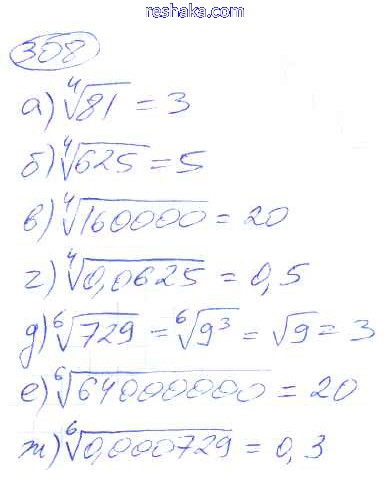 reshaka.com
308
а) ⁴√81 = 3
б) ⁴√625 = 5
в) ⁴√160000 = 20
г) ⁴√0,0625 = 0,5
д) ⁶√729 = ⁶√9³ = √9 = 3
е) ⁶√64000000 = 20
ж) ⁶√0,000729 = 0,3